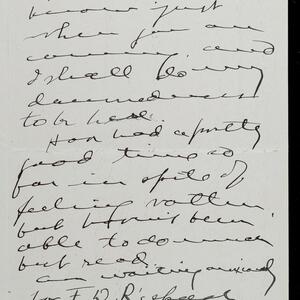 know just
when you are
coming and
I shall do my
damnedness
to be here.
Have had a pretty
good time so
far in spite of
feeling rotten
but haven't been
able to do much
but read.
am waiting anxiously
for F. D. R's